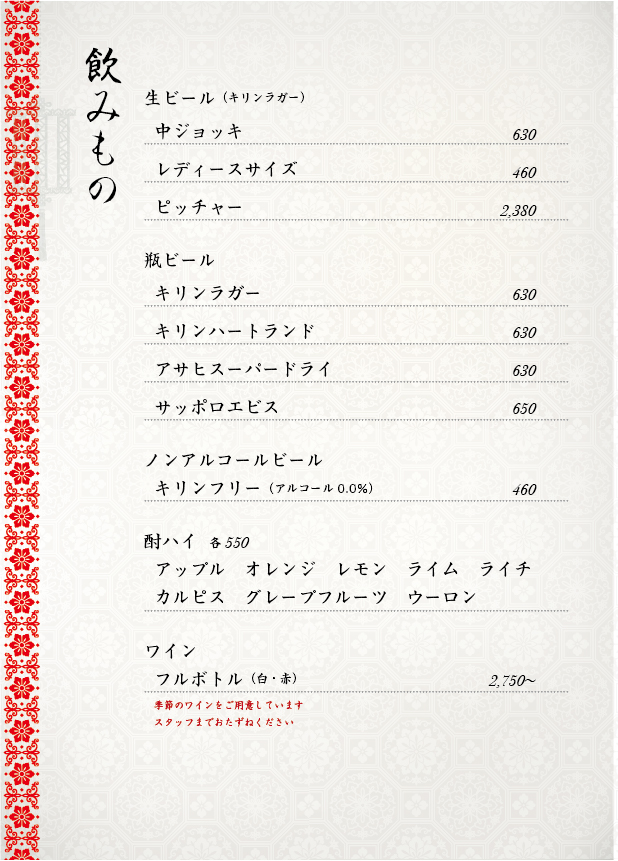 飲みもの
生ビール（キリンラガー）
中ジョッキ 630
レディースサイズ 460
ピッチャー 2,380
瓶ビール
キリンラガー 630
キリンハートランド 630
アサヒスーパードライ 630
サッポロエビス 650
ノンアルコールビール
キリンフリー（アルコール 0.0%） 460
酎ハイ 各550
アップル オレンジ レモン ライム ライチ
カルピス グレープフルーツ ウーロン
ワイン
フルボトル（白・赤） 2,750〜
季節のワインをご用意しています
スタッフまでおたずねください